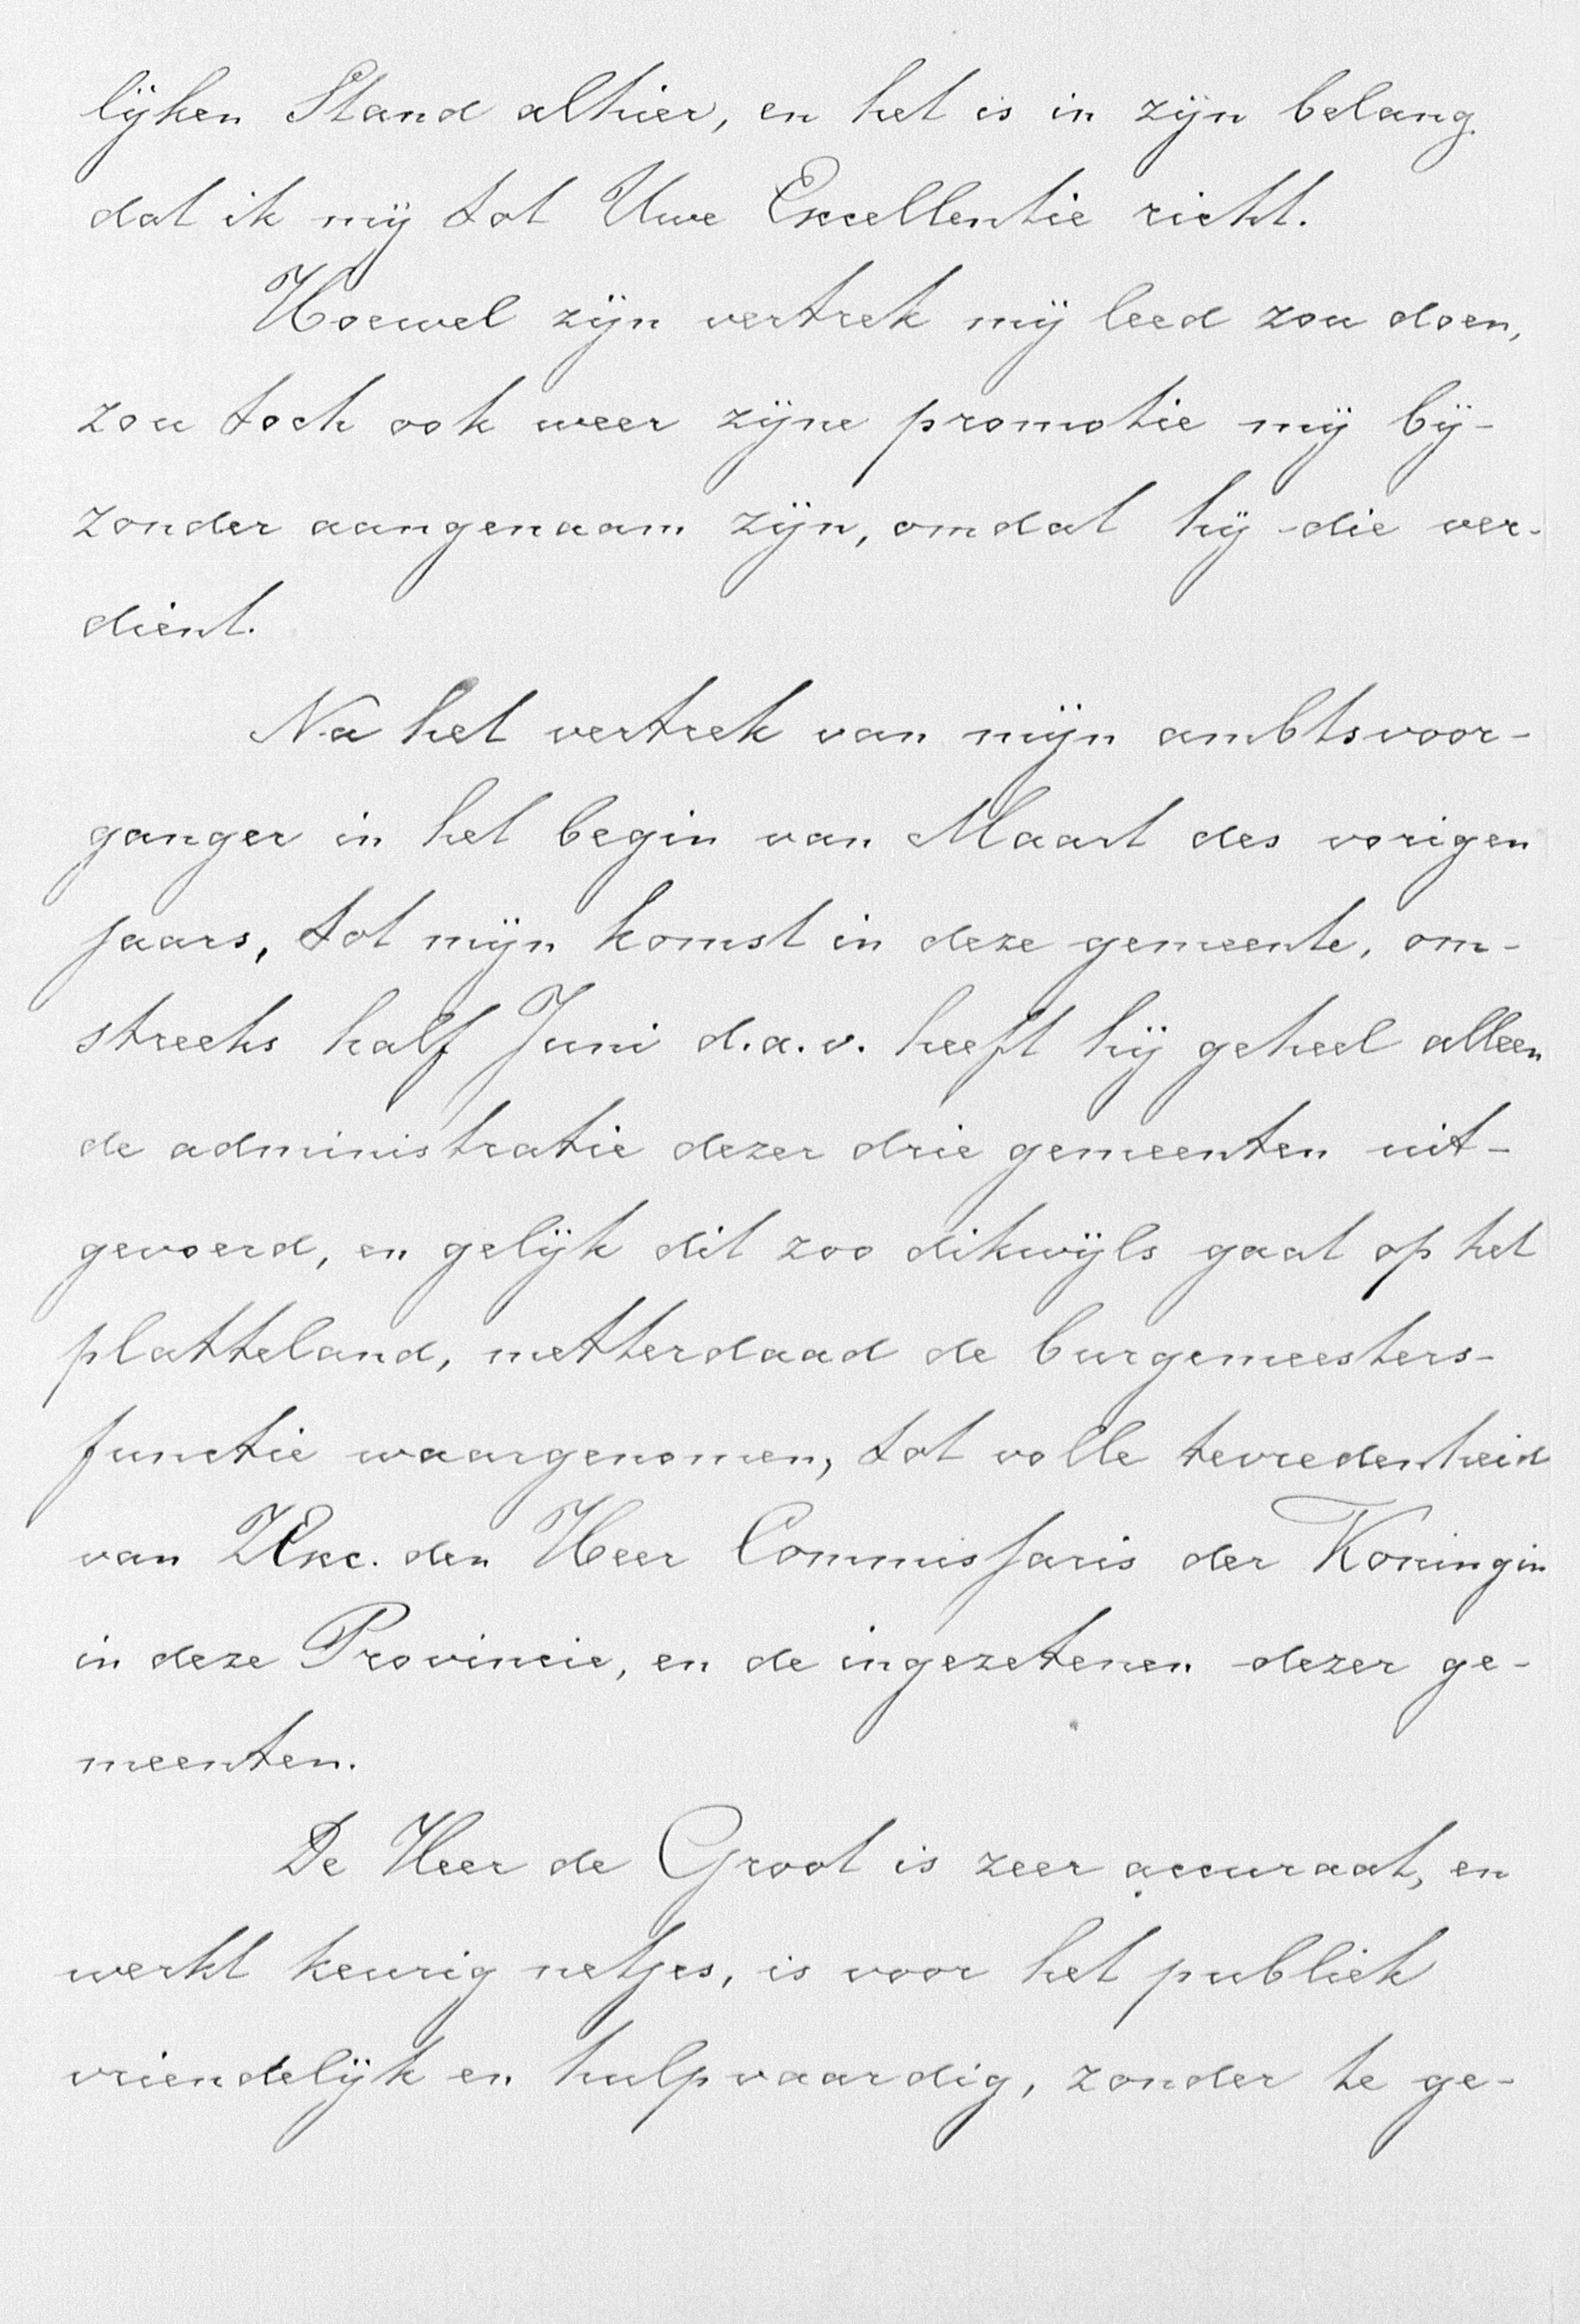 lijken Stand alhier, en het is in zijn belang
dat ik mij tot Uwe Excellentie richt.
Hoewel zijn vertrek mij leed zou doen,
zou toch ook weer zijne promotie mij bij-
zonder aangenaam zijn, omdat hij die ver-
dient.
Na het vertrek van mijn ambtsvoor-
ganger in het begin van Maart des vorigen
jaars, tot mijn komst in deze gemeente, om-
streeks half Juni d.a.v. heeft hij geheel alleen
de administratie dezer drie gemeenten uit-
gevoerd, en gelijk dit zoo dikwijls gaat op het
platteland, metterdaad de burgemeesters-
functie waargenomen, tot volle tevredenheid
van ZExc. den Heer Commissaris der Koningin
in deze Provincie, en de ingezetenen dezer ge-
meenten.
De Heer de Groot is zeer accuraat, en
werkt keurig netjes, is voor het publiek
vriendelijk en hulpvaardig, zonder te ge-